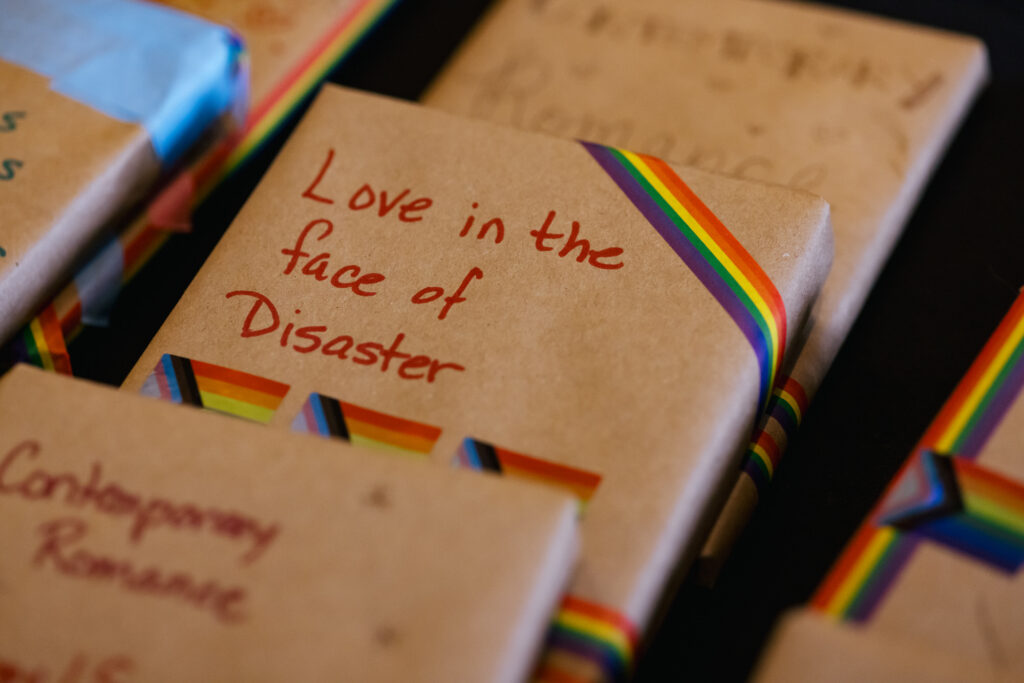 Love in the
face of
Disaster
Contemporary
Romance
Romance